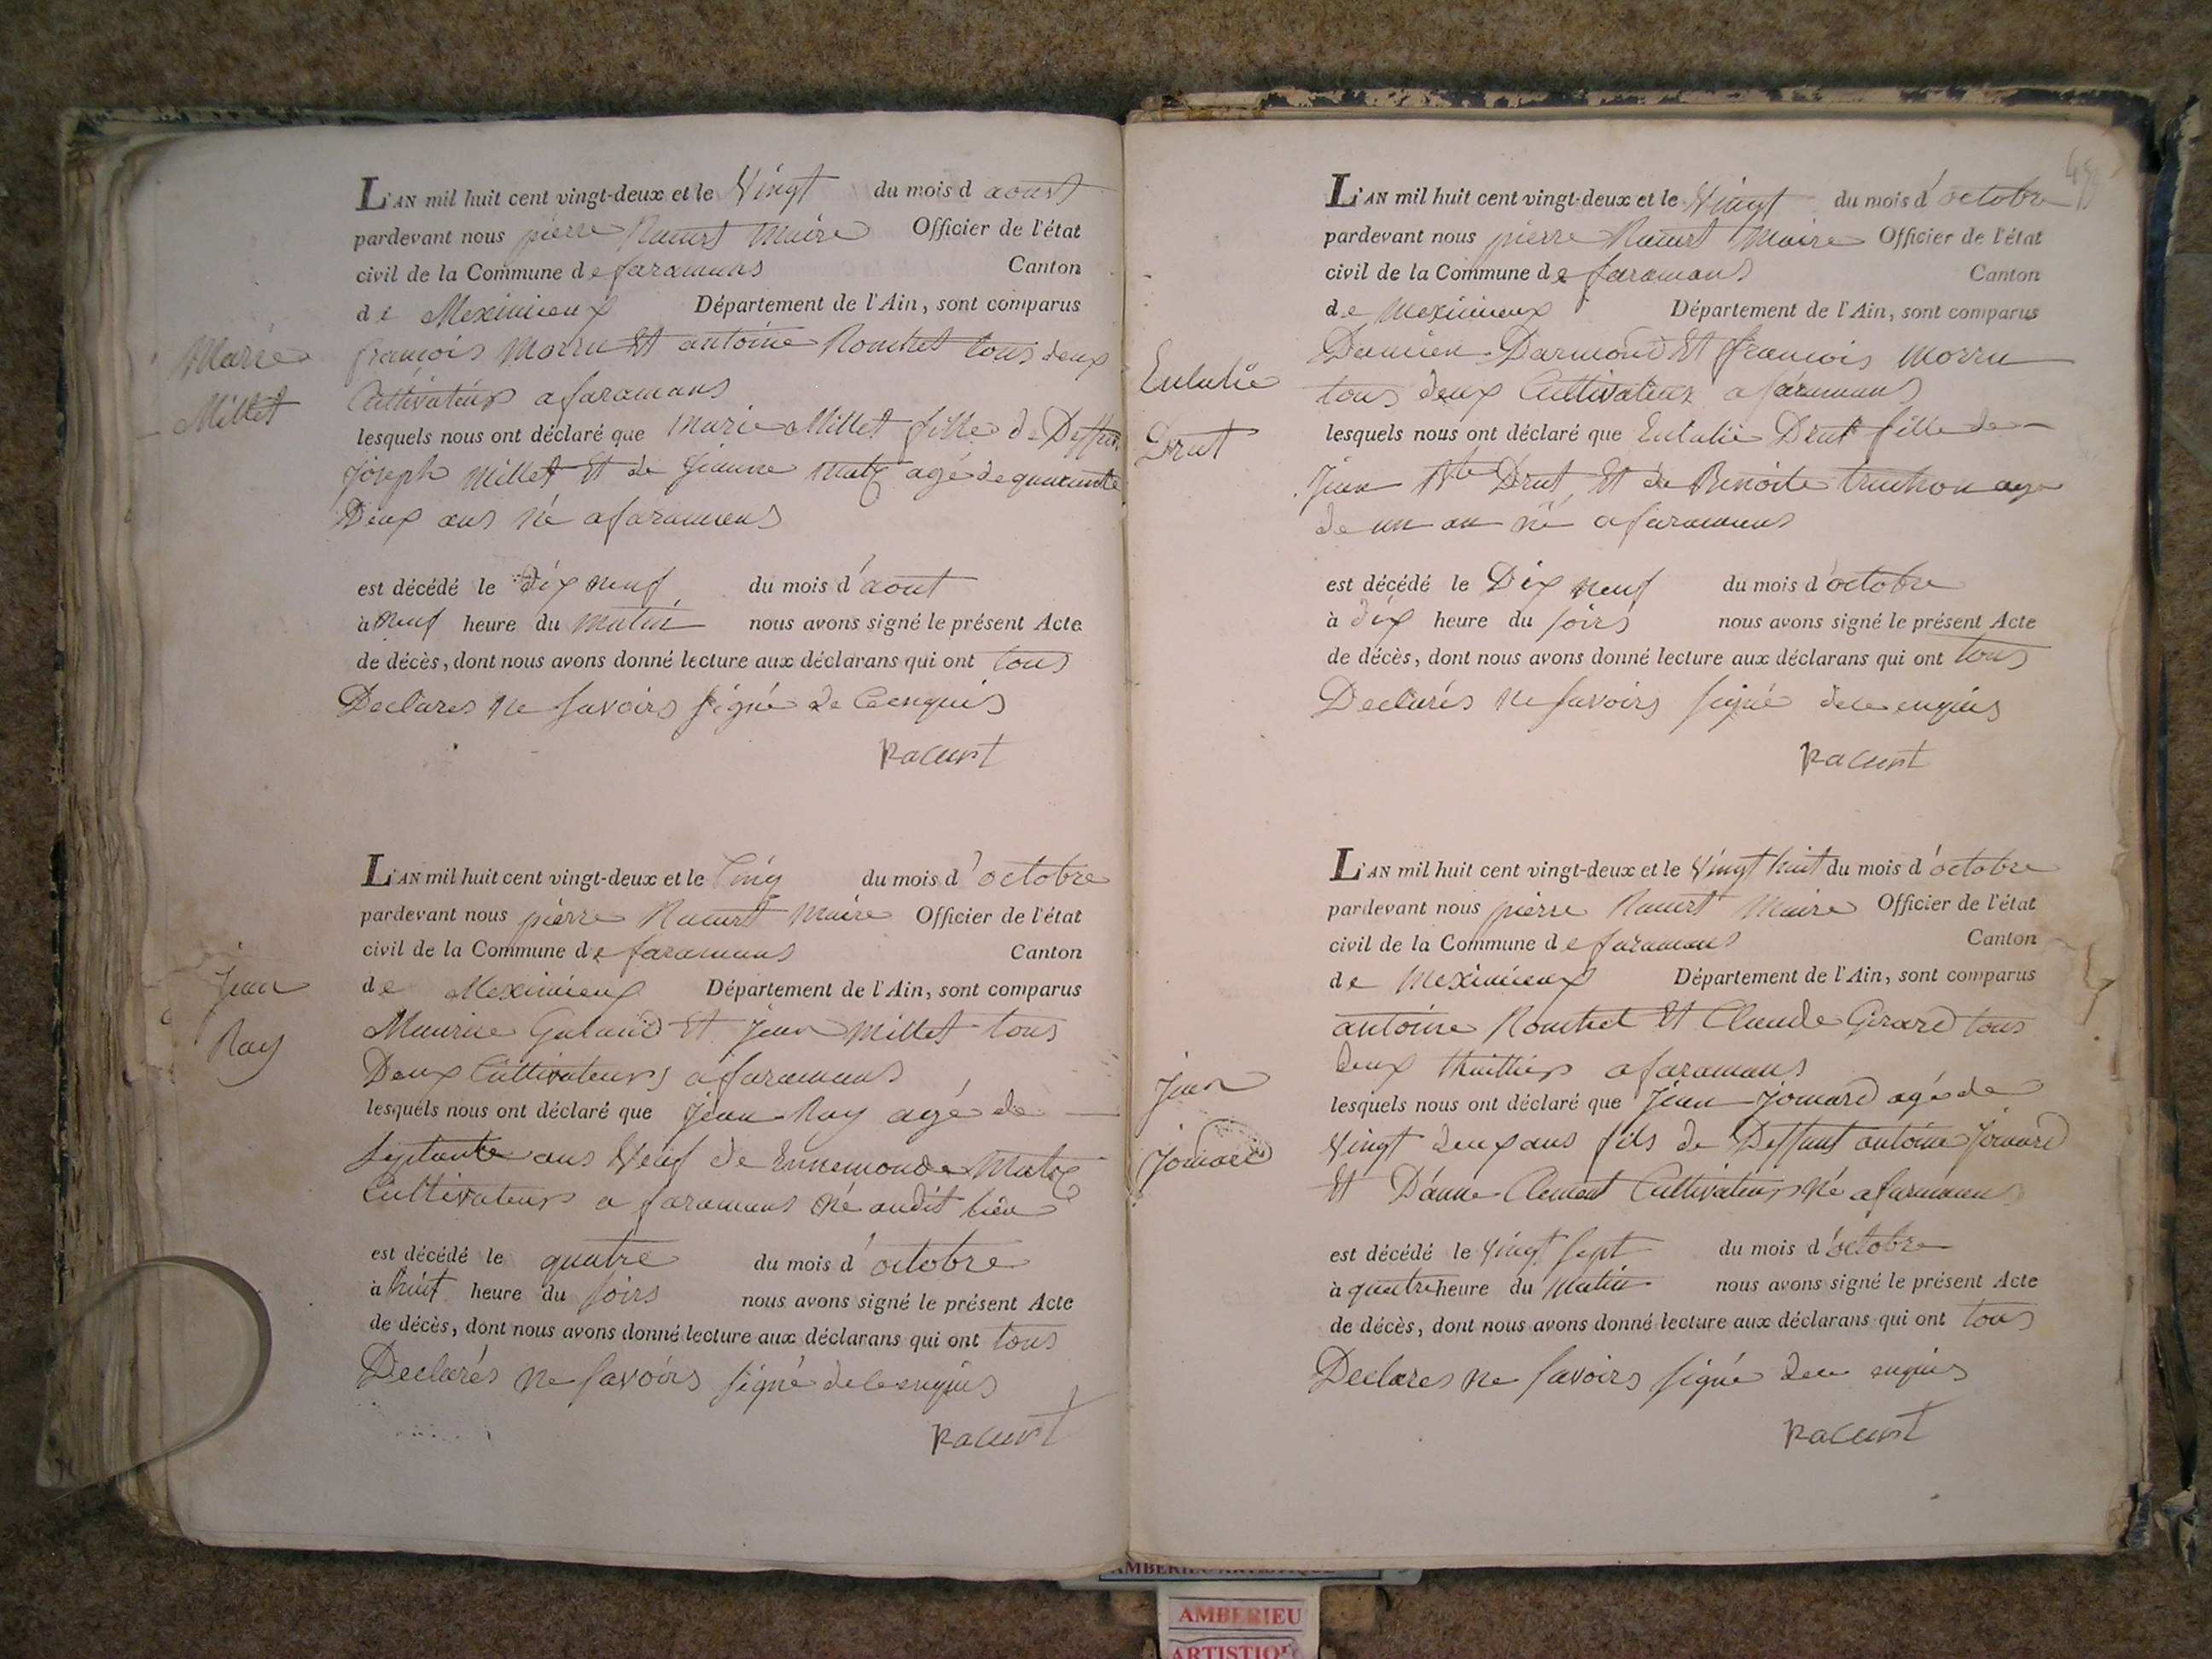 L'AN mil huit cent vingt-deux et le Vingt du mois d aoust
pardevant nous pierre Racurt Maire Officier de l'état
civil de la Commune de faramans Canton
de Meximieux Département de l'Ain, sont comparus
Marie
Millet
françois Morru Et antoine Rouchet tous deux
Cultivateurs a faramans
lesquels nous ont déclaré que Marie Millet fille de Deffun
Joseph Millet Et de Jeanne agé de quarante
Deux ans né a faramans
est décédé le dix neuf du mois d'aout
à Neuf heure du Matin nous avons signé le présent Acte
de décès, dont nous avons donné lecture aux déclarans qui ont tous
Declares ne savoirs signé de Ce enquis
Racurt
L'AN mil huit cent vingt-deux et le Cinq du mois d'octobre
pardevant nous pierre Racurt Maire Officier de l'état
civil de la Commune de faramans Canton
de Meximieux Département de l'Ain, sont comparus
Jean
Ray
Maurice Galand Et Jean Millet tous
Deux Cultivateurs a faramans
lesquels nous ont déclaré que Jean Ray agé de
Septante ans Veuf de Ennemonde
Cultivateurs a faramans Né audit lieu
est décédé le quatre du mois d'octobre
à huit heure du soirs nous avons signé le présent Acte
de décès, dont nous avons donné lecture aux déclarans qui ont tous
Declarés ne savoirs signé de ce enquis
Racurt
L'AN mil huit cent vingt-deux et le Vingt du mois d'octobre
pardevant nous pierre Racurt Maire Officier de l'état
civil de la Commune de faramans Canton
de Meximieux Département de l'Ain, sont comparus
Eulalie
Drut
Damien Darmond Et françois Morru
tous deux Cultivateur a faramans
lesquels nous ont déclaré que Eulalie Drut fille de
Jean Bte Drut, Et de Benoite truchon age
de un an né a faramans
est décédé le Dix neuf du mois d'octobre
à dix heure du soirs nous avons signé le présent Acte
de décès, dont nous avons donné lecture aux déclarans qui ont tous
Declarés ne savoirs signé de ce enquis
Racurt
L'AN mil huit cent vingt-deux et le Vingt huit du mois d'octobre
pardevant nous pierre Racurt Maire Officier de l'état
civil de la Commune de faramans Canton
de Meximieux Département de l'Ain, sont comparus
antoine Rouchet Et Claude Girard tous
deux thuilliers a faramans
Jean
Jomard
lesquels nous ont déclaré que Jean Jomard agé de
Vingt deux ans fils de Deffunt antoine Jomard
Et D'anne Clement Cultivateurs Né a faramans
est décédé le Vingt sept du mois d'octobre
à quatre heure du Matin nous avons signé le présent Acte
de décès, dont nous avons donné lecture aux déclarans qui ont tous
Declares ne savoirs signé de ce enquis
Racurt
AMBERIEU ARTISTIQUE
AMBERIEU
ARTISTIQUE